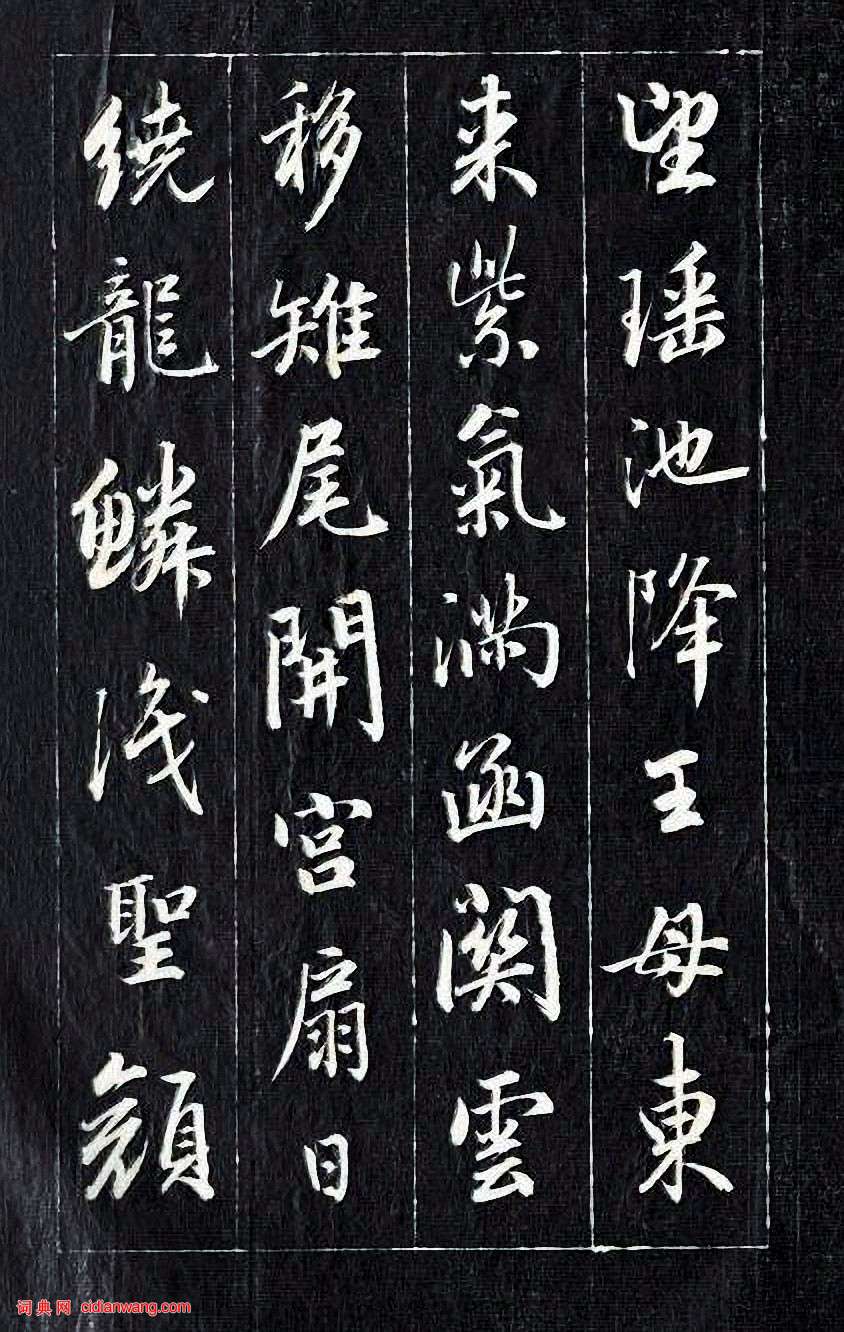 望瑤池降王母東
来紫氣滿函關雲
移雉尾開宮扇日
繞龍鱗識聖顏
词典网 cidianwang.com